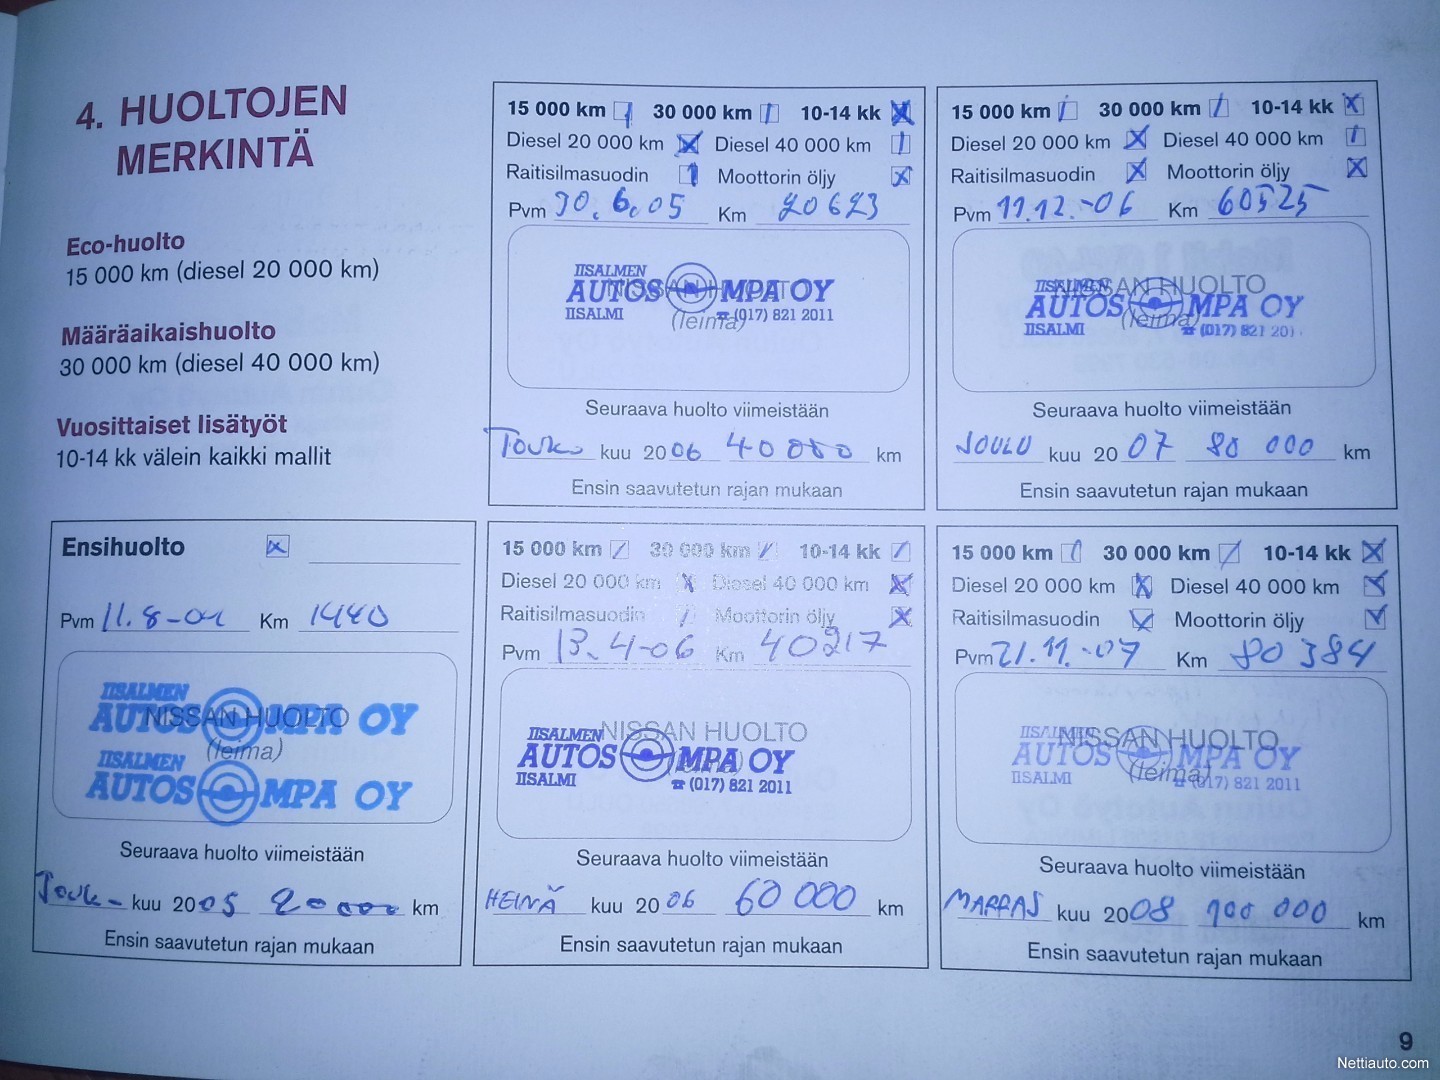 4. HUOLTOJEN
MERKINTÄ
Eco-huolto
15 000 km (diesel 20 000 km)
Määräaikaishuolto
30 000 km (diesel 40 000 km)
Vuosittaiset lisätyöt
10-14 kk välein kaikki mallit
15 000 km 30 000 km 10-14 kk
Diesel 20 000 km Diesel 40 000 km
Raitisilmasuodin Moottorin öljy
Pvm 30.6.05 Km 20623
NISSAN HUOLTO
(leima)
IISALMEN
AUTOSOMPA OY
IISALMI ☎ (017) 821 2011
Seuraava huolto viimeistään
Touko kuu 2006 40000 km
Ensin saavutetun rajan mukaan
15 000 km 30 000 km 10-14 kk
Diesel 20 000 km Diesel 40 000 km
Raitisilmasuodin Moottorin öljy
Pvm 11.12.-06 Km 60525
NISSAN HUOLTO
(leima)
IISALMEN
AUTOSOMPA OY
IISALMI ☎ (017) 821 201
Seuraava huolto viimeistään
JOULU kuu 2007 80 000 km
Ensin saavutetun rajan mukaan
Ensihuolto
Pvm 11.8-04 Km 1440
NISSAN HUOLTO
(leima)
IISALMEN
AUTOSOMPA OY
IISALMEN
AUTOSOMPA OY
Seuraava huolto viimeistään
Touko- kuu 2005 20000 km
Ensin saavutetun rajan mukaan
15 000 km 30 000 km 10-14 kk
Diesel 20 000 km Diesel 40 000 km
Raitisilmasuodin Moottorin öljy
Pvm 13.4-06 Km 40217
NISSAN HUOLTO
(leima)
IISALMEN
AUTOSOMPA OY
IISALMI ☎ (017) 821 2011
Seuraava huolto viimeistään
HEINÄ kuu 2006 60 000 km
Ensin saavutetun rajan mukaan
15 000 km 30 000 km 10-14 kk
Diesel 20 000 km Diesel 40 000 km
Raitisilmasuodin Moottorin öljy
Pvm 21.11.-07 Km 80384
NISSAN HUOLTO
(leima)
IISALMEN
AUTOSOMPA OY
IISALMI ☎ (017) 821 2011
Seuraava huolto viimeistään
MARRAS kuu 2008 100 000 km
Ensin saavutetun rajan mukaan
9
Nettiauto.com